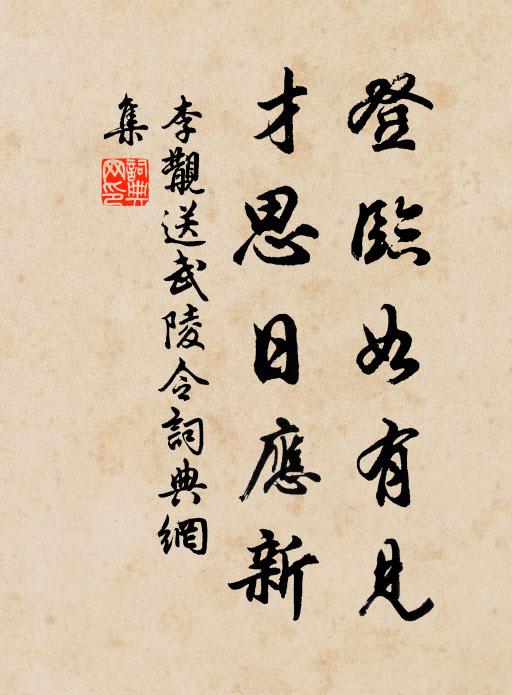 登臨如有見
才思日應新
李覯送武陵令詞典網
集
詞典
网印